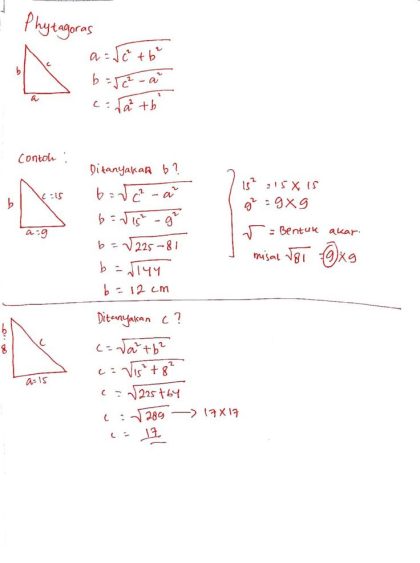 Phytagoras
b c a
a = √c² + b²
b = √c² - a²
c = √a² + b²
Contoh :
b c=15 a=9
Ditanyakan b?
b = √c² - a²
b = √15² - 9²
b = √225 - 81
b = √144
b = 12 cm
15² = 15 × 15
9² = 9 × 9
√ = Bentuk akar.
misal √81 = 9 × 9
b: 8 c a=15
Ditanyakan c ?
c = √a² + b²
c = √15² + 8²
c = √225 + 64
c = √289 → 17 × 17
c = 17